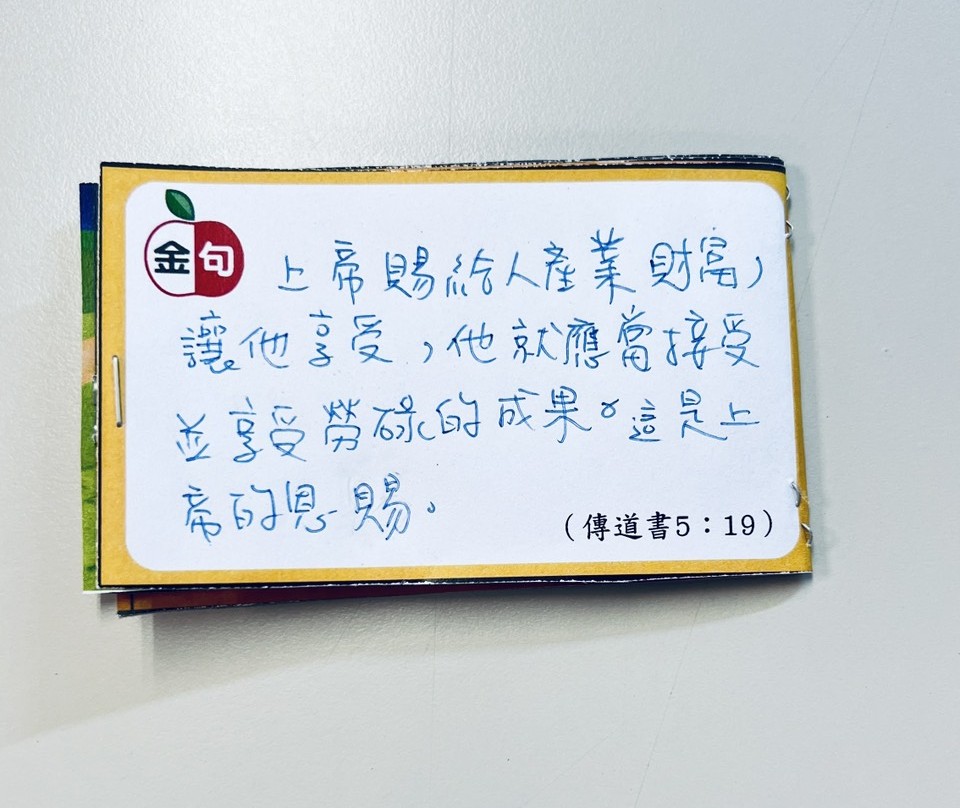 金句
上帝賜給人產業財富，
讓他享受，他就應當接受
並享受勞碌的成果。這是上
帝的恩賜。
（傳道書5：19）